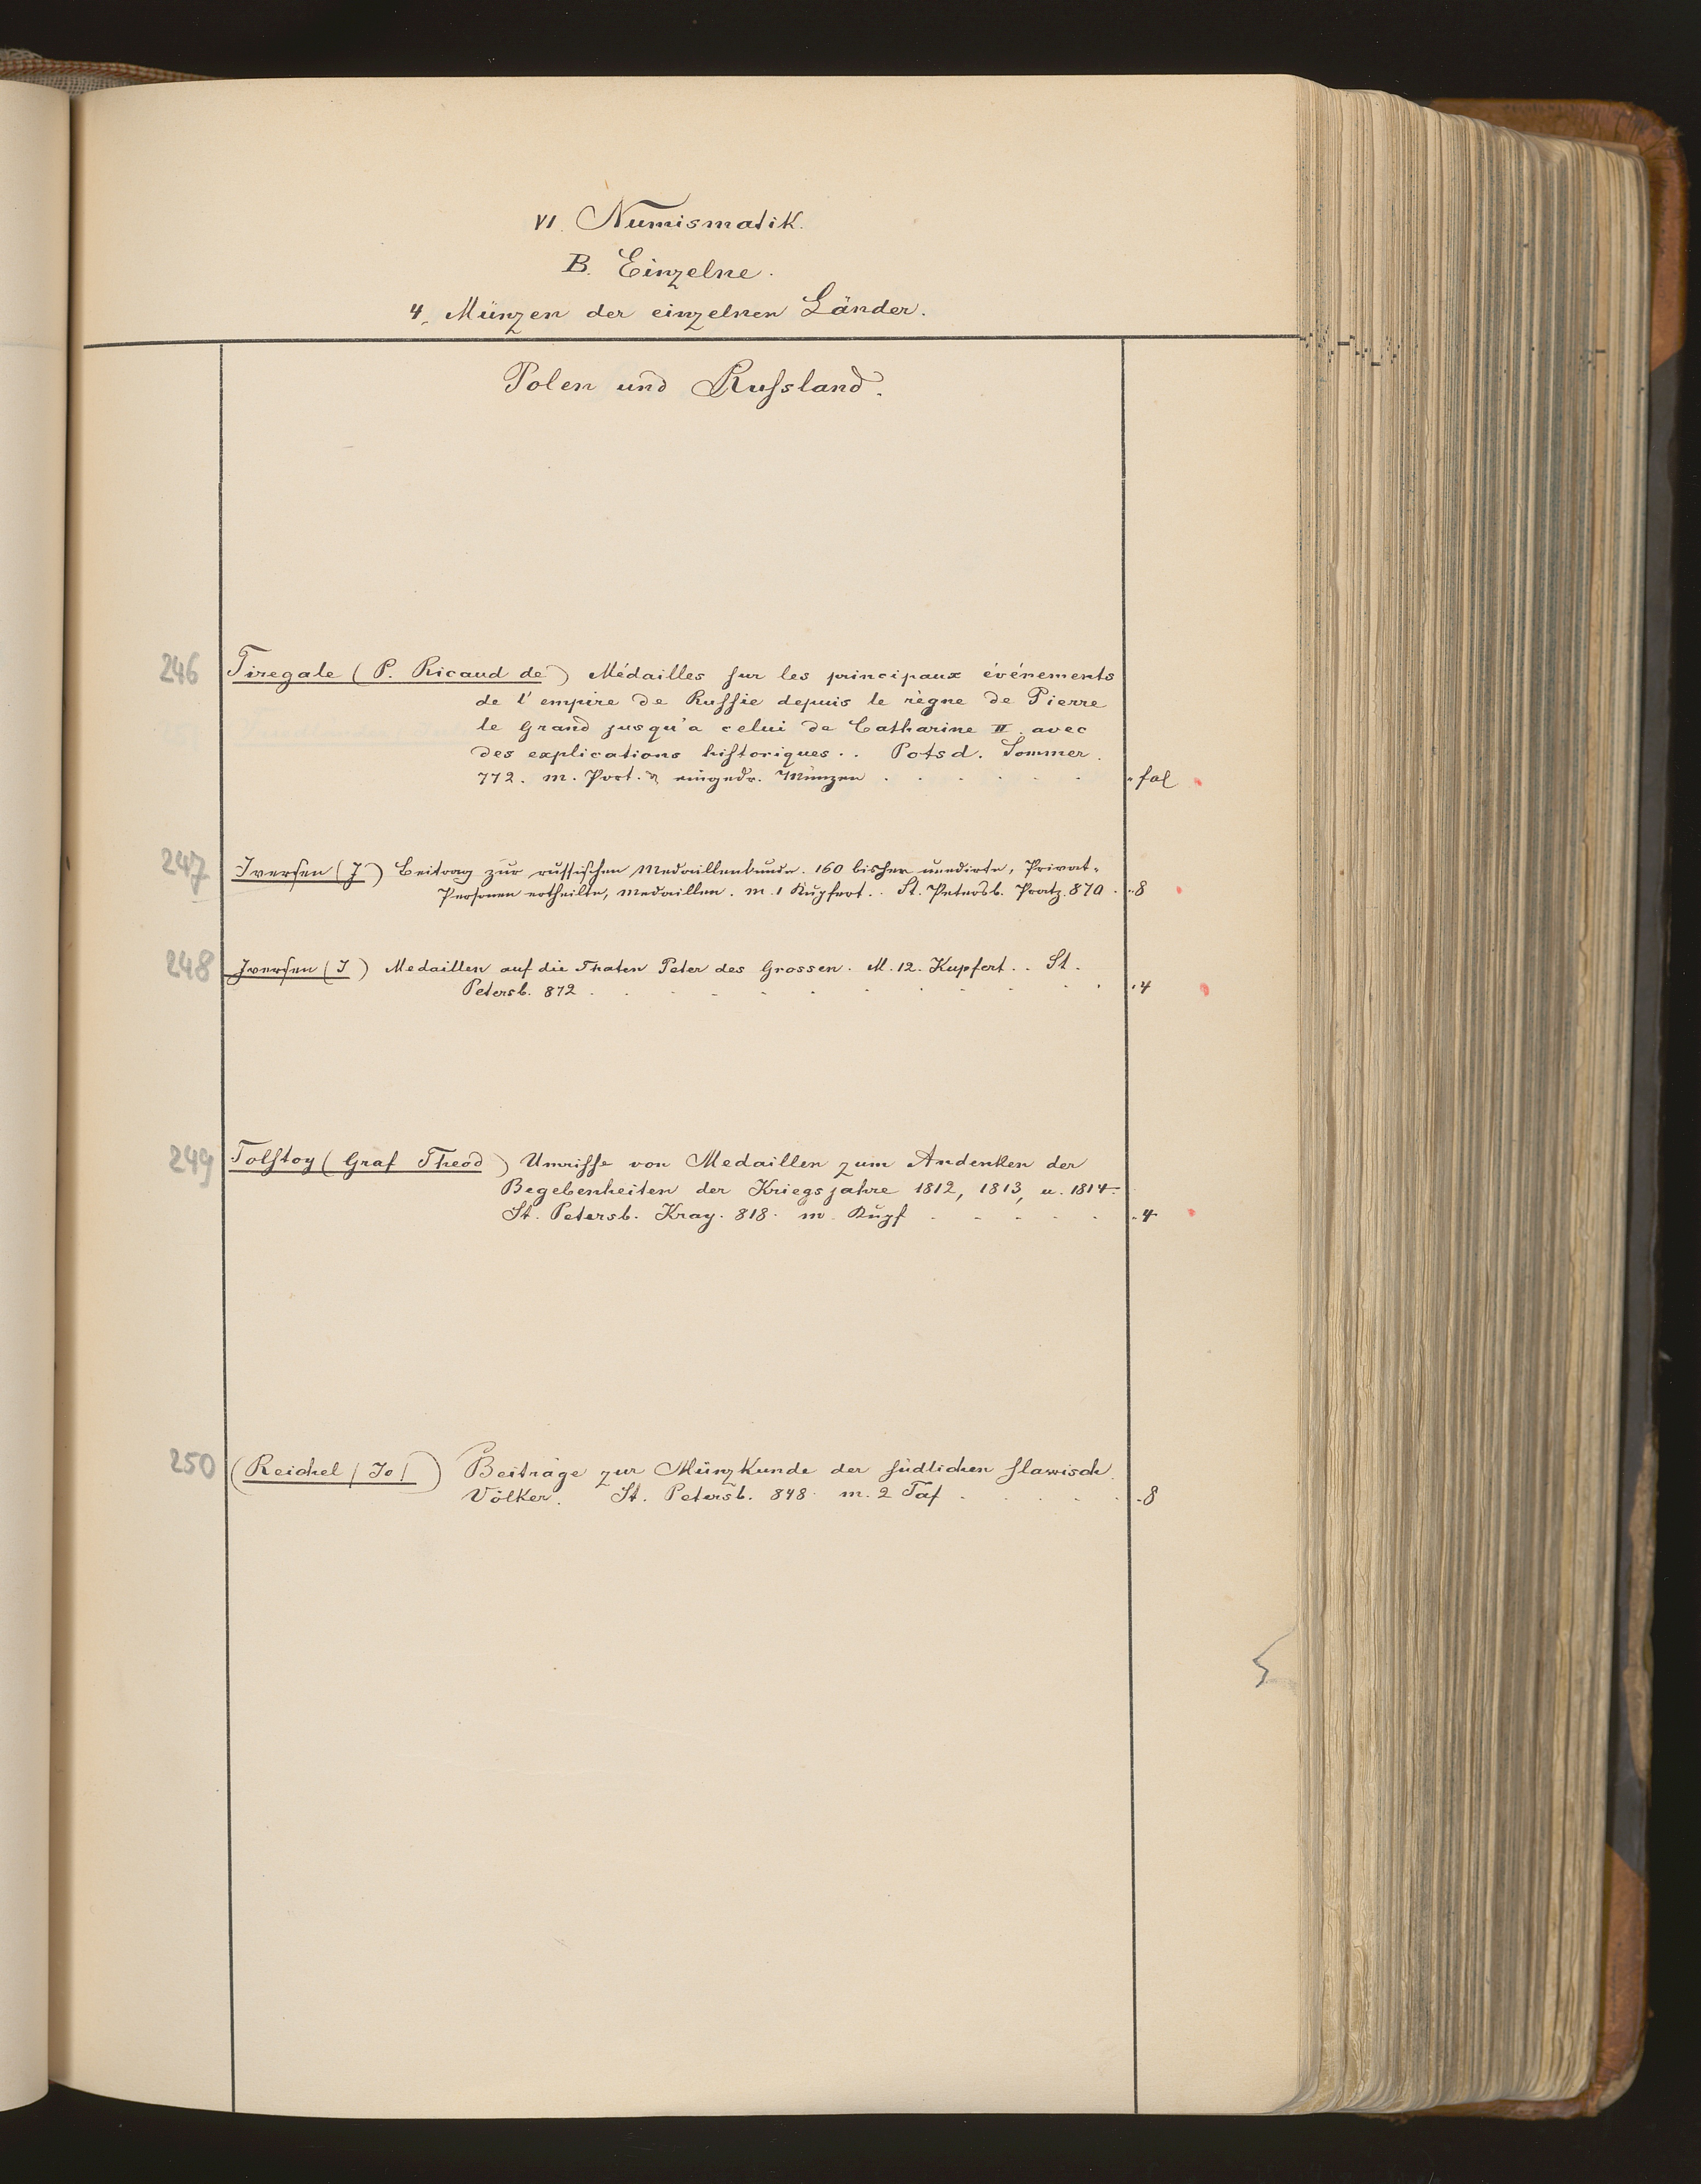 VI. Numismatik.
B. Einzelne.
4. Münzen der einzelnen Länder.
Polen und Russland.
246 Tiregale (P. Ricaud de) Médailles sur les principaux événements
de l'empire de Russie depuis le règne de Pierre
le Grand jusqu'a celui de Catharine II. avec
des explications historiques.. Potsd. Sommer.
772. m. Port. & eingedr. Münzen . . . . . . fol
247 Iversen (J) Beitrag zur russischen Medaillenkunde. 160 bisher unedirte, Privat-
Personen ertheilte, Medaillen. m. 1 Kupfert.. St. Petersb. Pratz. 870. 8
248 Iversen (J) Medaillen auf die Thaten Peter des Grossen. M. 12. Kupfert.. St.
Petersb. 872 . . . . . . . . . . . 4
249 Tolstoy (Graf Theod) Umrisse von Medaillen zum Andenken der
Begebenheiten der Kriegsjahre 1812, 1813, u. 1814.
St. Petersb. Kray. 818. m. Kupf . . . . . 4
250 (Reichel (Jo)) Beiträge zur Münzkunde der südlichen slawisch.
Völker. St. Petersb. 848. m. 2 Taf . . . . . 8